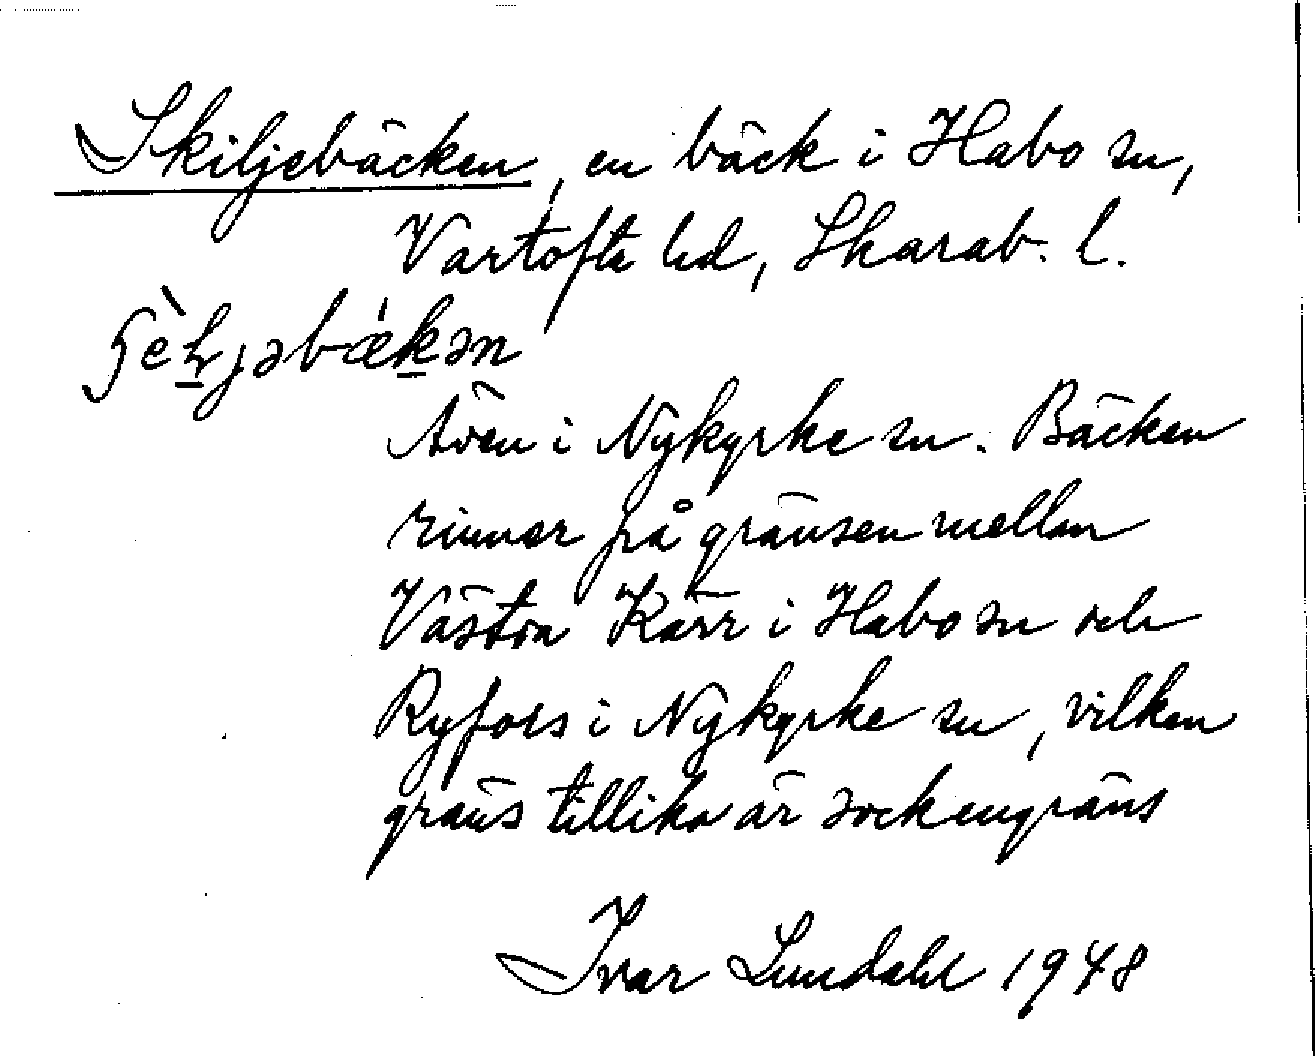 Skiljebäcken, en bäck i Habo sn,
Vartofta hd, Skarab. l.
Även i Nykyrke sn. Bäcken
rinner på gränsen mellan
Västra Kärr i Habo sn och
Ryfors i Nykyrke sn, vilken
gräns tillika är sockengräns
Ivar Lundahl 1948